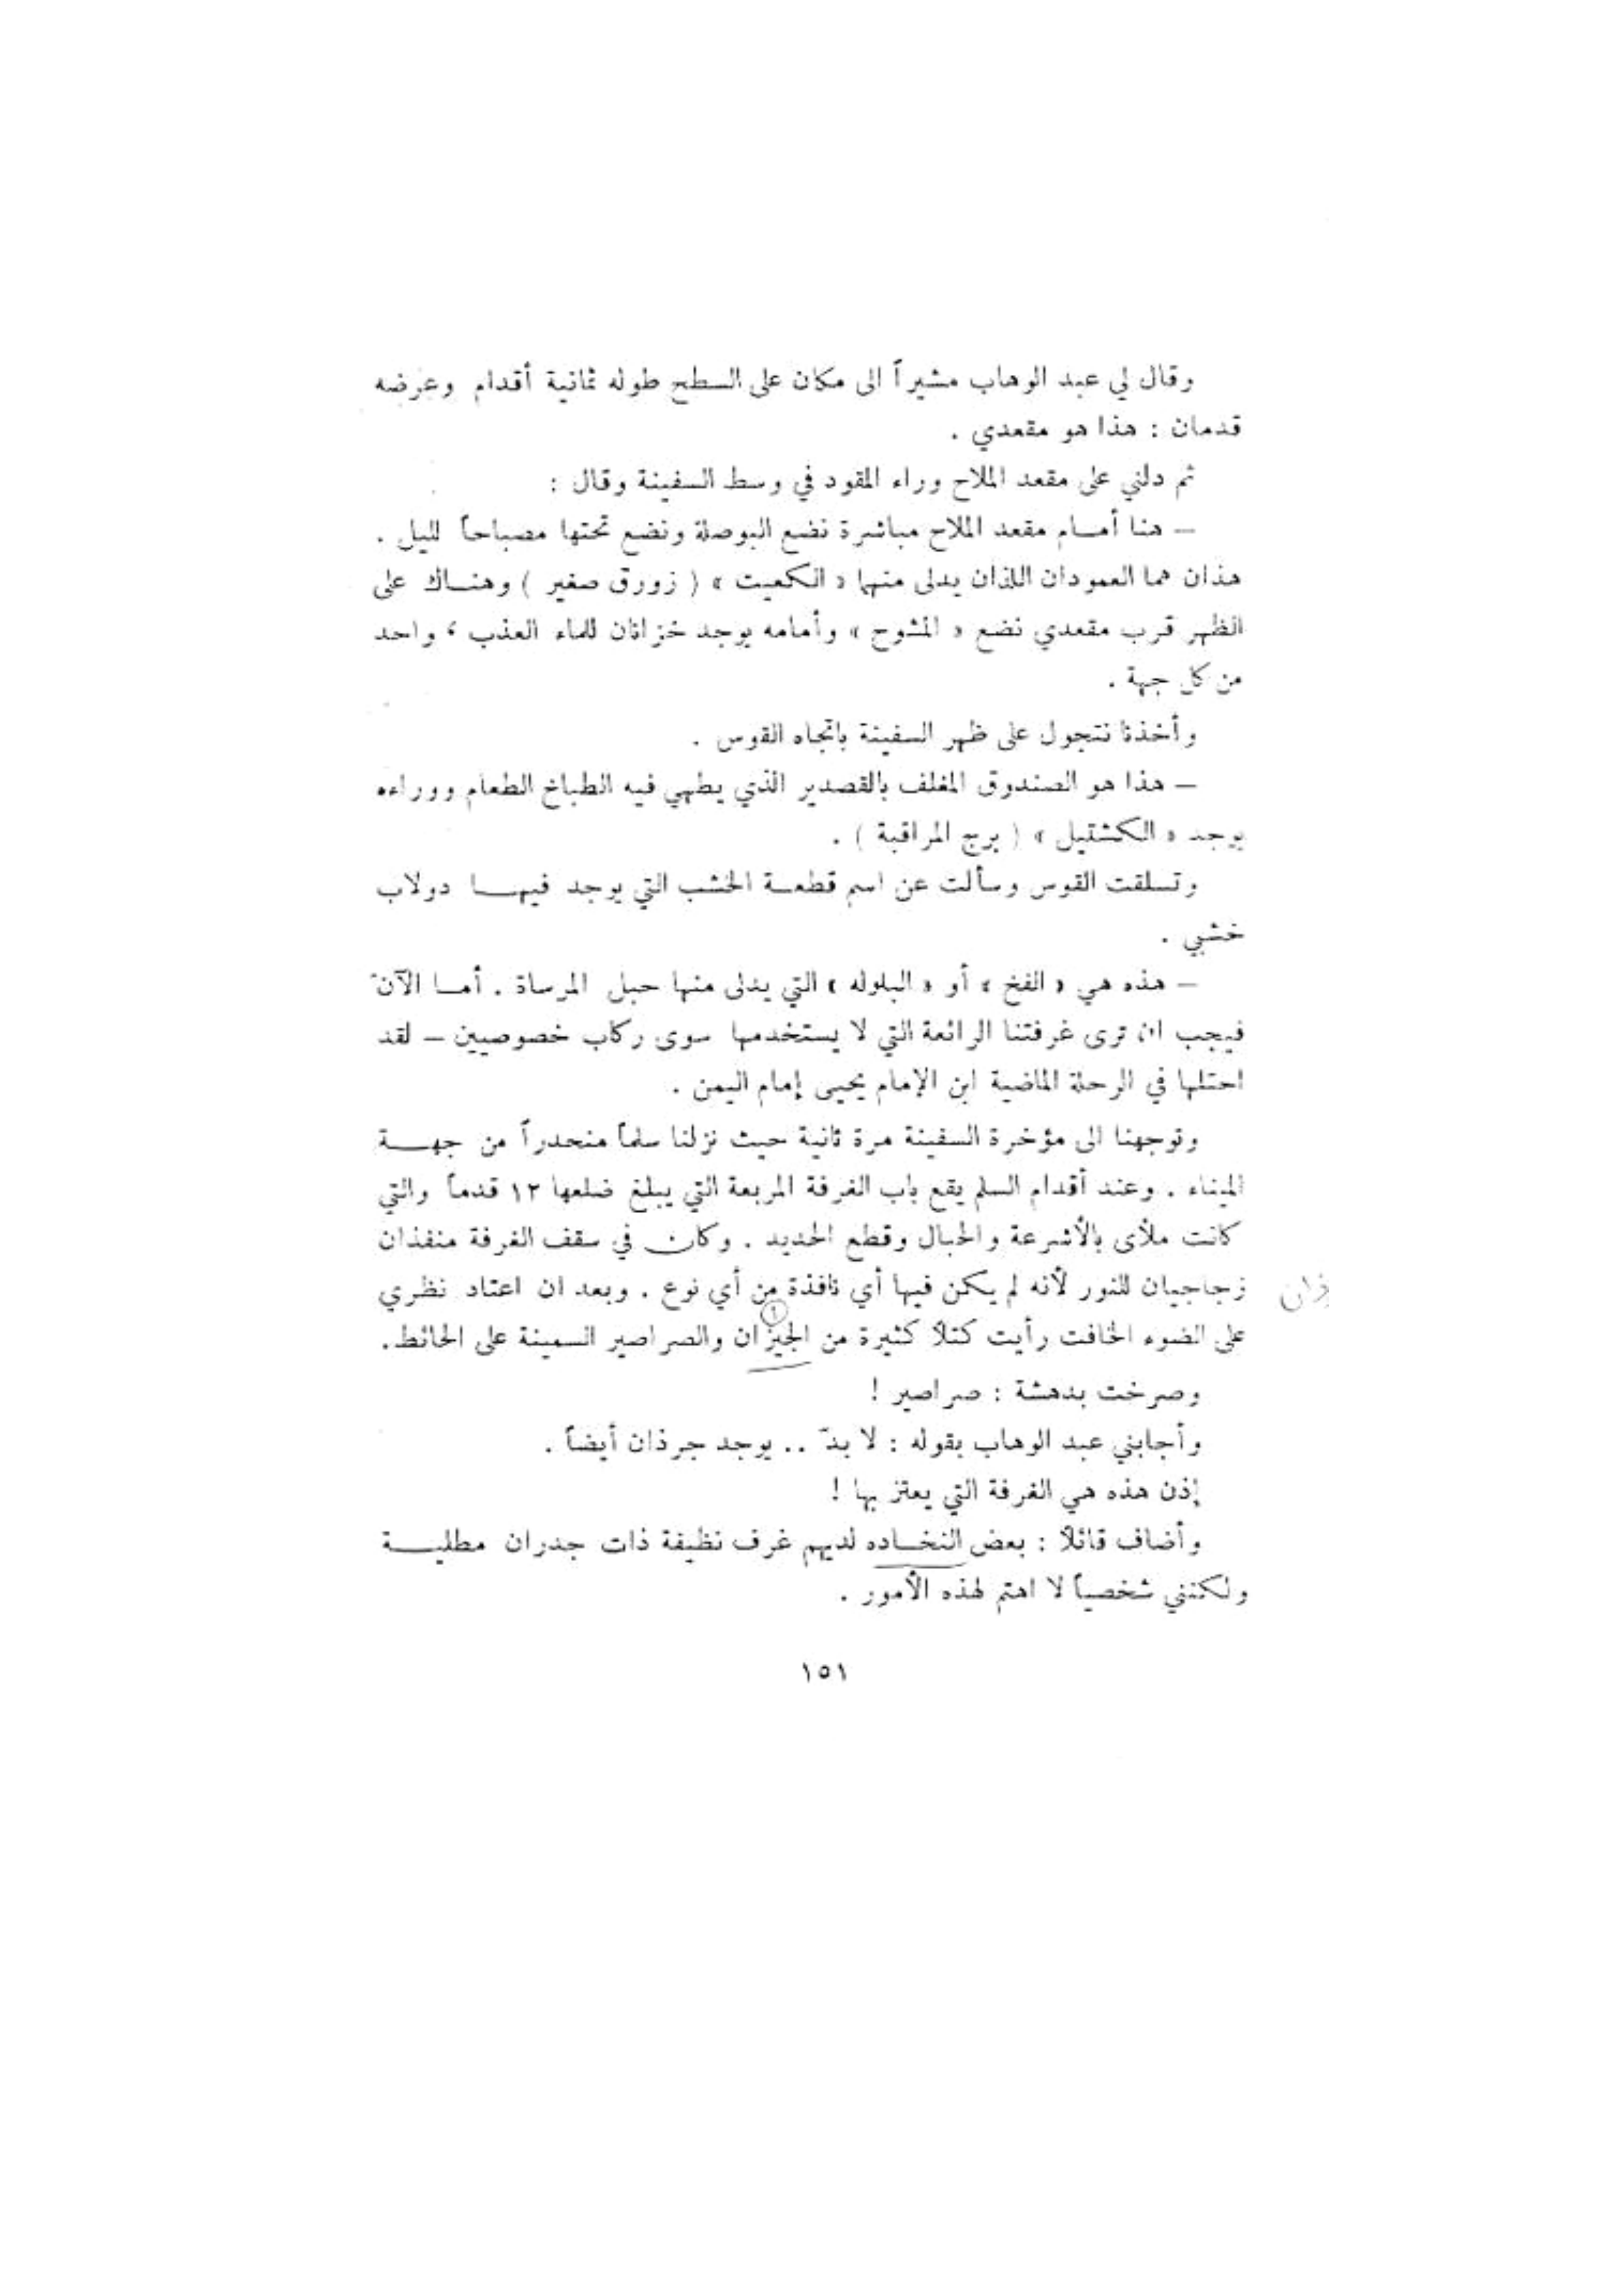 وقال لي عبد الوهاب مشيراً الى مكان على السطح طوله ثمانية أقدام وعرضه
قدمان : هذا هو مقعدي .
ثم دلني على مقعد الملاح وراء المقود في وسط السفينة وقال :
– هنا أمام مقعد الملاح مباشرة نضع البوصلة ونضع تحتها مصباحاً لليل .
هذان هما العمودان اللذان يدلى منها « الكعيت » ( زورق صغير ) وهناك على
الظهر قرب مقعدي نضع « المشوح » وأمامه يوجد خزانان للماء العذب ، واحد
من كل جهة .
وأخذنا نتجول على ظهر السفينة باتجاه القوس .
– هذا هو الصندوق المغلف بالقصدير الذي يطهي فيه الطباخ الطعام ووراءه
يوجد « الكشتيل » ( برج المراقبة ) .
وتسلقت القوس وسألت عن اسم قطعة الخشب التي يوجد فيها دولاب
خشبي .
– هذه هي « الفخ » أو « البلوله » التي يدلى منها حبل المرساة . أما الآن
فيجب ان ترى غرفتنا الرائعة التي لا يستخدمها سوى ركاب خصوصيين – لقد
احتلها في الرحلة الماضية ابن الإمام يحيى إمام اليمن .
وتوجهنا الى مؤخرة السفينة مرة ثانية حيث نزلنا سلماً منحدراً من جهة
الميناء . وعند أقدام السلم يقع باب الغرفة المربعة التي يبلغ ضلعها ١٢ قدماً والتي
كانت ملأى بالأشرعة والحبال وقطع الحديد . وكان في سقف الغرفة منفذان
زجاجيان للنور لأنه لم يكن فيها أي نافذة من أي نوع . وبعد ان اعتاد نظري
على الضوء الخافت رأيت كتلاً كثيرة من الجيزان والصراصير السمينة على الحائط.
وصرخت بدهشة : صراصير !
وأجابني عبد الوهاب بقوله : لا بدّ .. يوجد جرذان أيضاً .
إذن هذه هي الغرفة التي يعتز بها !
وأضاف قائلاً : بعض النخاده لديهم غرف نظيفة ذات جدران مطلية
ولكنني شخصياً لا اهتم لهذه الأمور .
١٥١